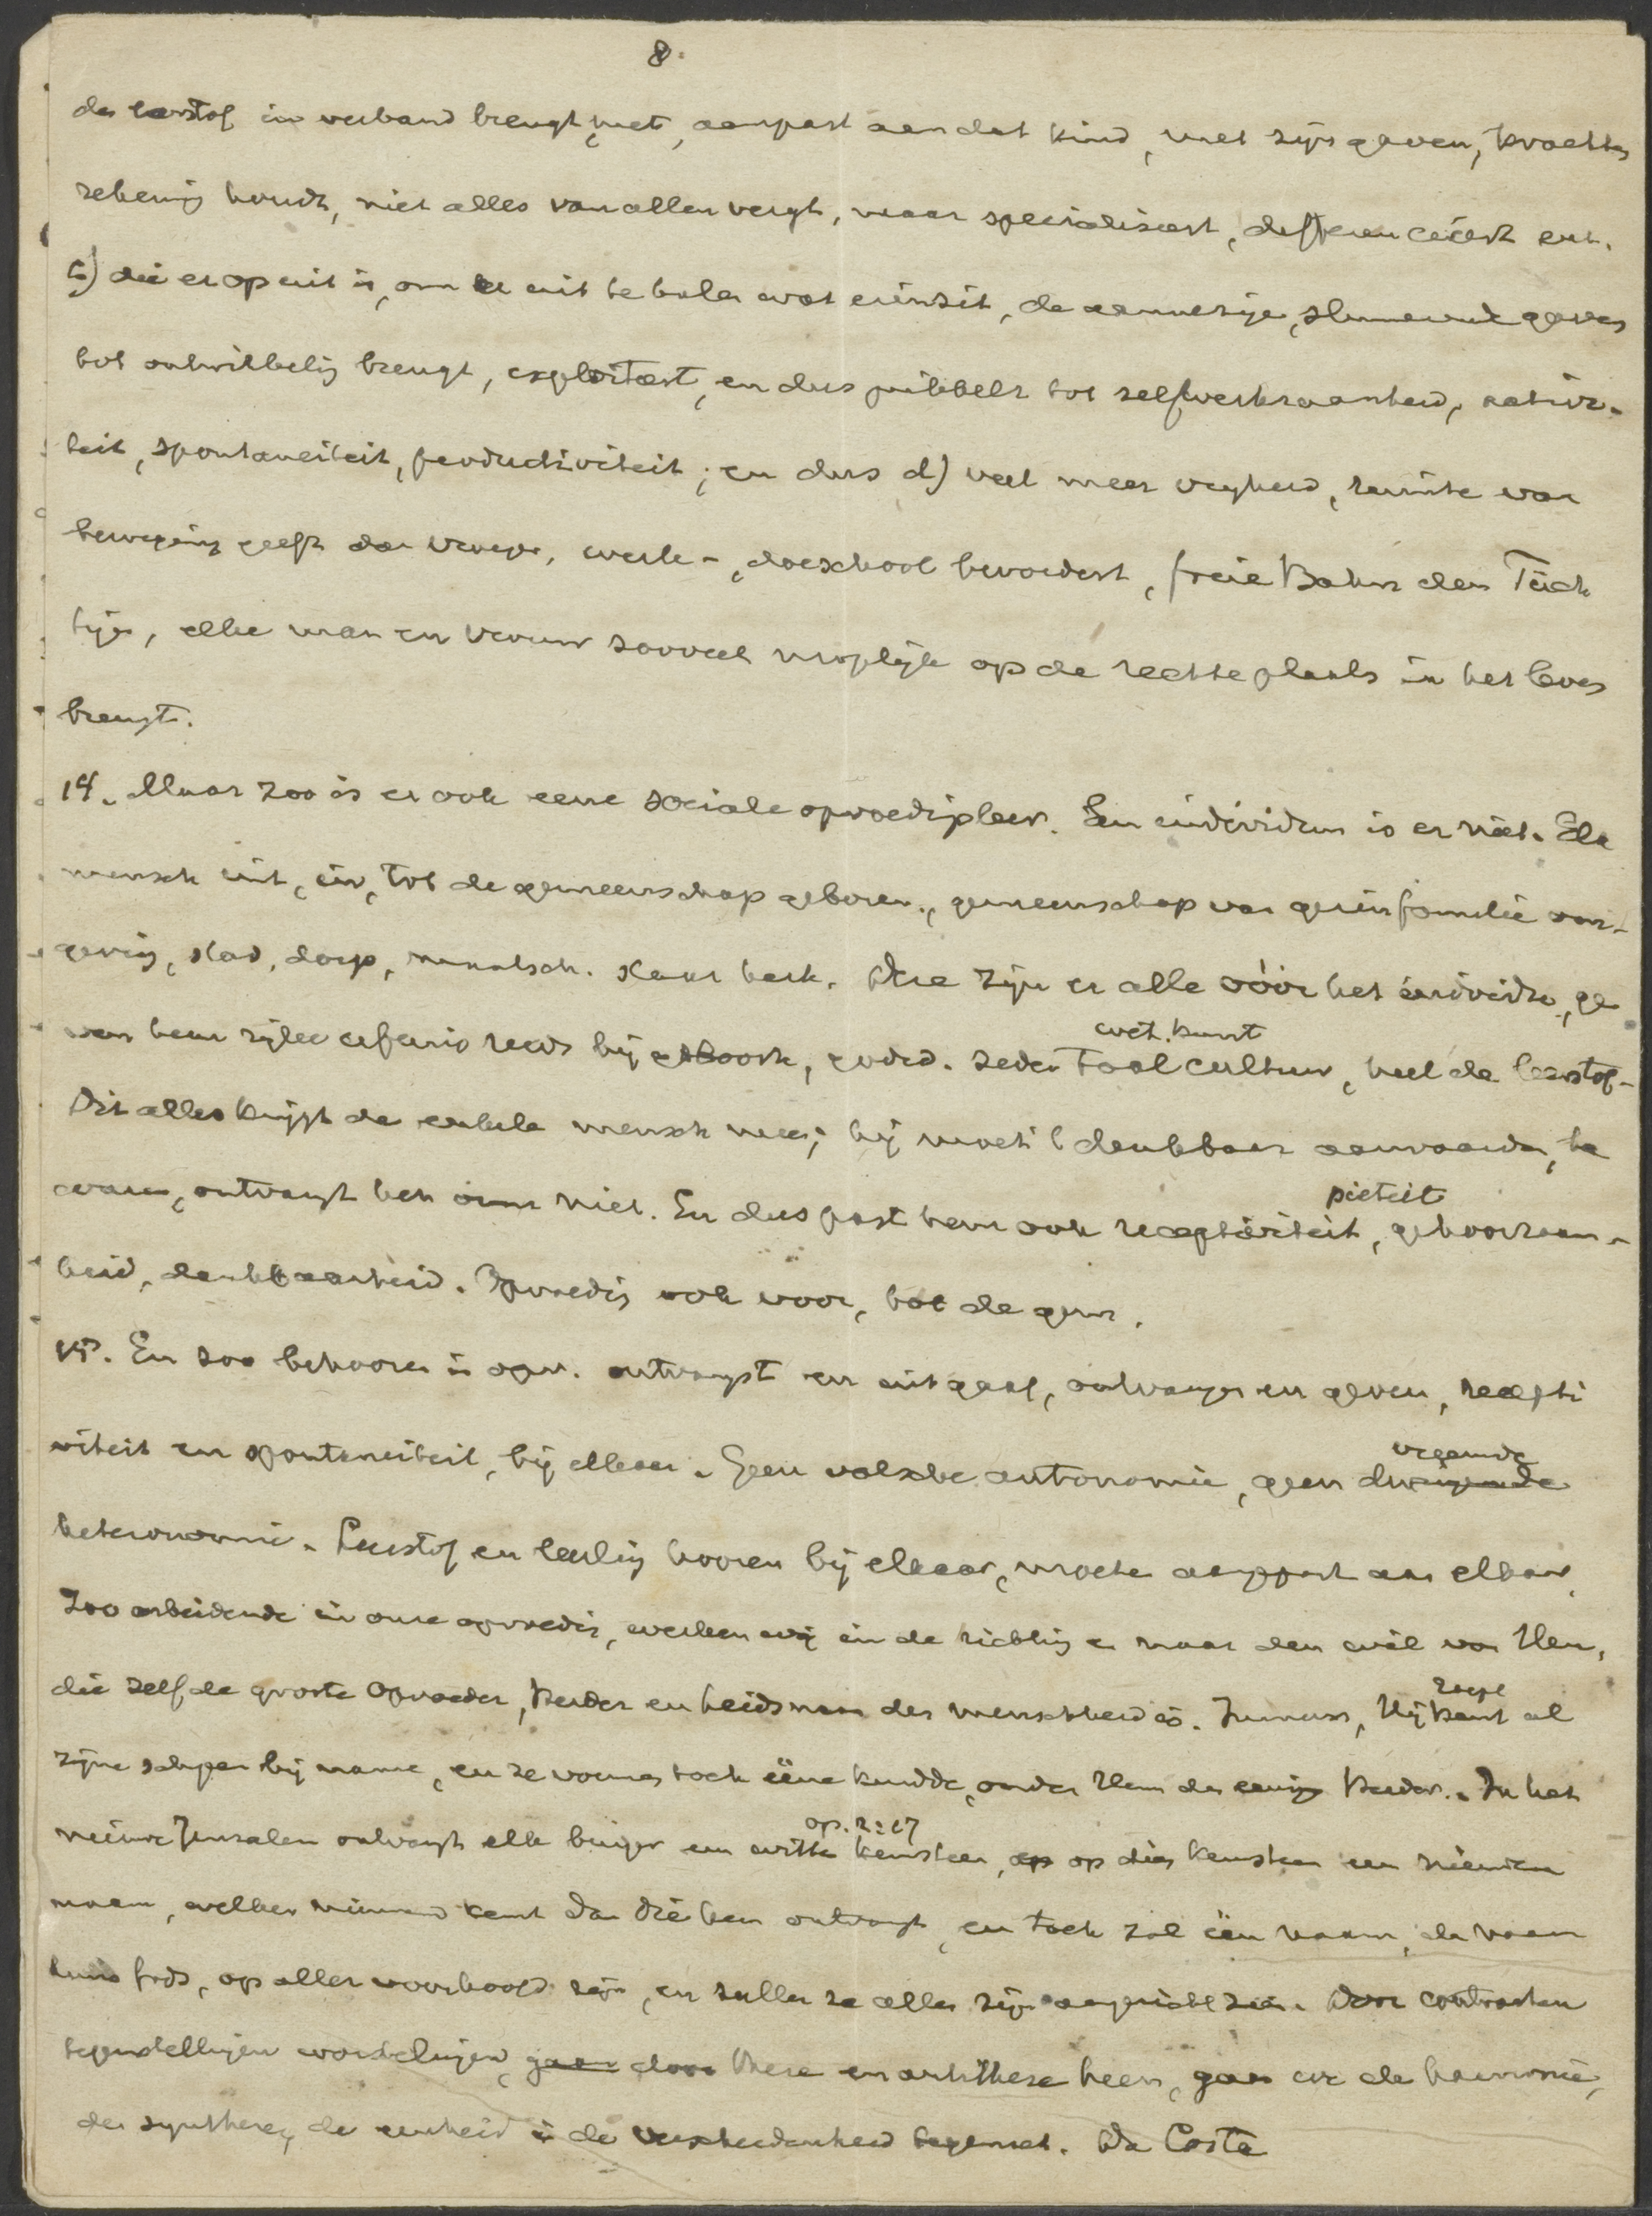 8.
de leerstof in verband brengt met, aanpast aan dat kind, met zijn gaven, krachten
rekening houdt, niet alles van allen vergt, maar specialiseert, differencieert enz.
c) die er op uit is, om er uit te halen wat erin zit, de aanwezige, sluimerende gaven
tot ontwikkeling brengt, exploiteert, en dus prikkelt tot zelfwerkzaamheid, activi-
teit, spontaneïteit, productiviteit; en dus d) veel meer vrijheid, ruimte van
beweging geeft dan vroeger, werk-, doeschool bevordert, freie Bahn dem Tüch
tigen, elke man en vrouw zooveel mogelijk op de rechte plaats in het leven
brengt.
14. Maar zoo is er ook eene sociale opvoedingsleer. Een individu is er niet. Elk
mensch uit, in, tot de gemeenschap geboren, gemeenschap van gezin familie om-
geving, stad, dorp, maatsch. staat kerk. Deze zijn er alle vóór het individu, ge
ven hem zijne erfenis reeds bij geboorte, godsd. zeden taal cultuur, heel de leerstof.
wet. kunst
Dit alles krijgt de enkele mensch mee; hij moet 't dankbaar aanvaarden, be
waren, ontvangt het om niet. En dus past hem ook receptiviteit, gehoorzaam-
pieteit
heid, dankbaarheid. Opvoeding ook voor, tot de gem.
15. En zoo behooren in opv. ontvangst en uitgaaf, ontvangen en geven, recepti
viteit en spontaneïteit, bij elkaar. Geen valsche autonomie, geen dwingende
vreemde
heteronomie. Leerstof en leerling hooren bij elkaar, moeten aangepast aan elkaar.
Zoo arbeidende in onze opvoeding, werken wij in de richting en naar den wil van Hem,
die zelf de groote Opvoeder, Herder en Leidsman der menschheid is. Immers, Hij kent al
roept
zijne schapen bij name, en ze vormen toch ééne kudde, onder Hem den eenigen Herder. In het
nieuwe Jeruzalem ontvangt elk burger een witten keursteen, op dien keursteen een nieuwen
op. 2:17
naam, welken niemand kent dan die hem ontvangt, en toch zal één naam, de naam
huns Gods, op aller voorhoofd zijn, en zullen ze allen zijn aangezicht zien. Door contrasten
tegenstellingen worstelingen, gaan door these en antithese heen, gaan we de harmonie,
de synthese, de eenheid in de verscheidenheid tegemoet. Da Costa